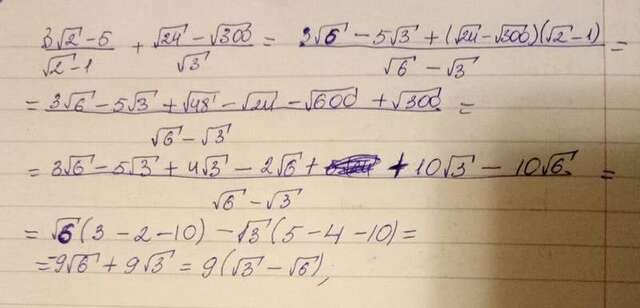 (3√2 - 5)/(√2 - 1) + (√24 - √300)/√3 = (3√6 - 5√3 + (√24 - √300)(√2 - 1))/(√6 - √3) =
= (3√6 - 5√3 + √48 - √24 - √600 + √300)/(√6 - √3) =
= (3√6 - 5√3 + 4√3 - 2√6 + + 10√3 - 10√6)/(√6 - √3) =
= √6(3 - 2 - 10) - √3(5 - 4 - 10) =
= -9√6 + 9√3 = 9(√3 - √6),